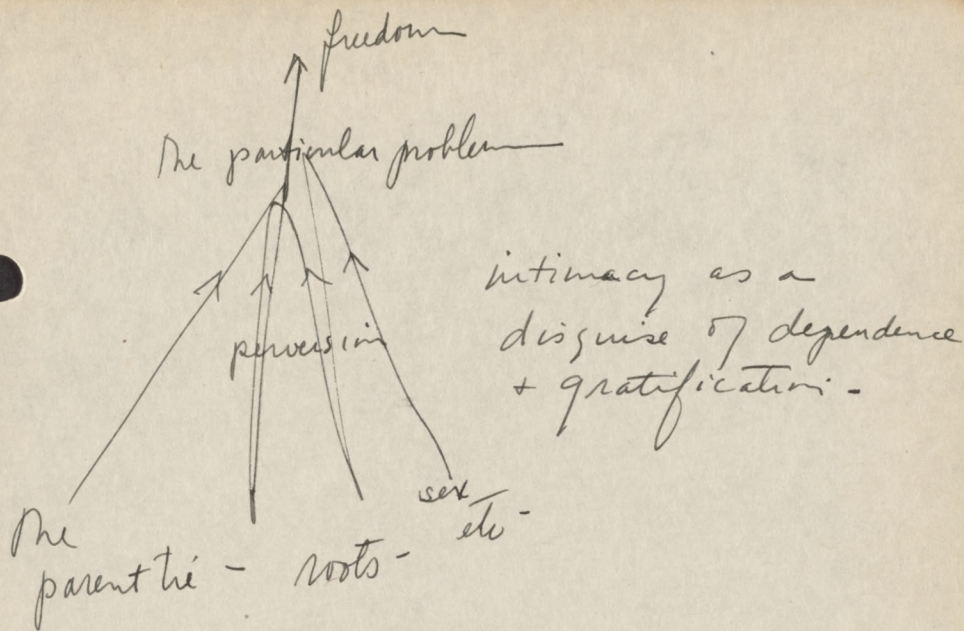 freedom
The particular problem
perversion
intimacy as a
disguise of dependence
+ gratification -
The
parent tie - roots - sex
etc -